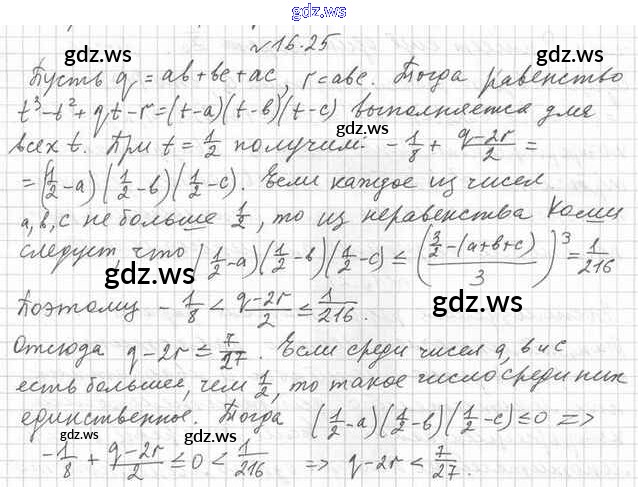 gdz.ws
№16.25
gdz.ws
gdz.ws
Пусть q = ab+bc+ac, r=abc. Тогда равенство
t³-t²+qt-r=(t-a)(t-b)(t-c) выполняется для
gdz.ws
всех t. При t = 1/2 получим: -1/8 + (q-2r)/2 =
= (1/2 -a)(1/2 -b)(1/2 -c). Если каждое из чисел
a, b, c не больше 1/2, то из неравенства Коши
следует, что (1/2 -a)(1/2 -b)(1/2 -c) ≤ ((3/2 -(a+b+c))/3)³ = 1/216
gdz.ws
gdz.ws
Поэтому -1/8 < (q-2r)/2 ≤ 1/216.
Отсюда q-2r ≤ 7/27. Если среди чисел a, b и c
есть большее, чем 1/2, то такое число среди них
единственное. Тогда (1/2 -a)(1/2 -b)(1/2 -c) ≤ 0 =>
gdz.ws
gdz.ws
-1/8 + (q-2r)/2 ≤ 0 < 1/216 => q-2r < 7/27.